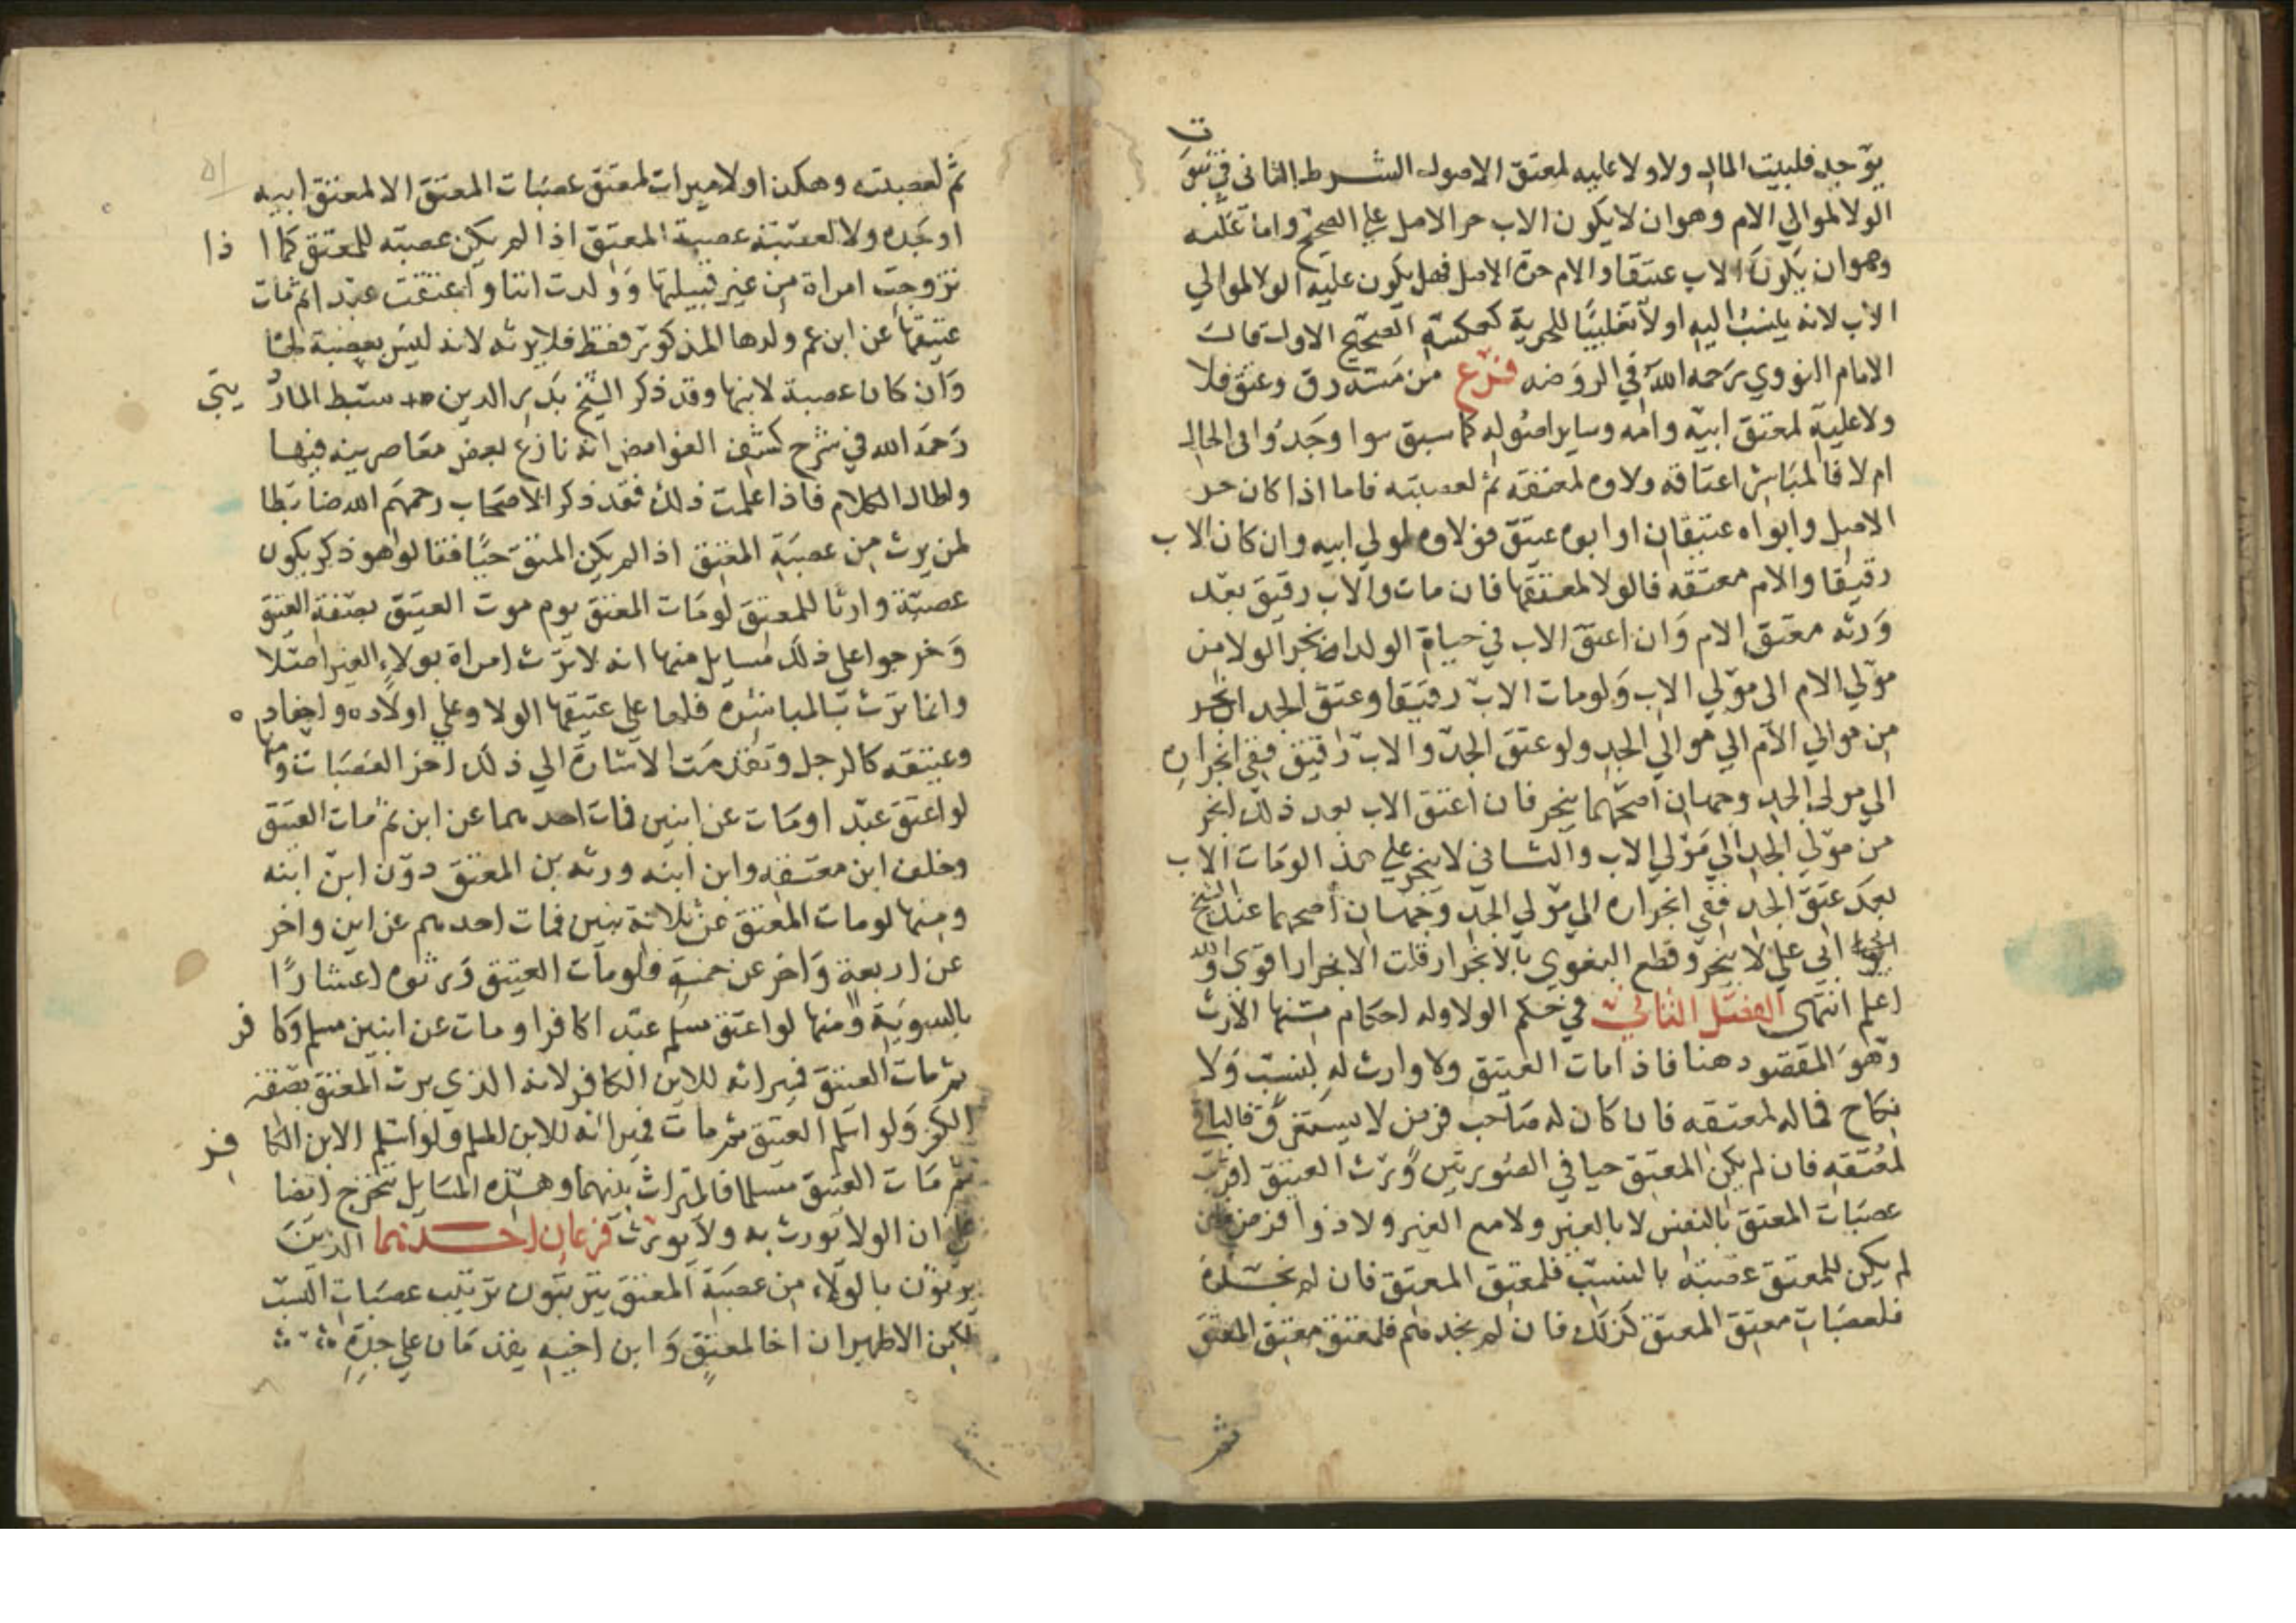 يوجد فلبيت المال ولا ولا عليه لمعتق الاصول الشرط الثاني في ثبوت
الولا لموالي الام وهو ان لا يكون الاب حر الاصل على الصحيح واما عكسه
وهو ان يكون الاب عتيقا والام حرة الاصل فهل يكون عليه الولا لموالي
الاب لانه ينسب اليه او لا تغليبا للحرية كعكسه الصحيح الاول قال
الامام النووي رحمه الله في الروضه فرع من مسه رق وعتق فلا
ولا عليه لمعتق ابيه وامه وساير اصوله كما سبق سوا وجدوا في الحال
ام لا فالمباشر اعتاقه ولاوه لمعتقه ثم لعصبته فاما اذا كان حر
الاصل وابواه عتيقان او ابوه عتيق فولاوه لمولي ابيه وان كان الاب
رقيقا والام معتقه فالولا لمعتقها فان مات والاب رقيق بعد
ورثه معتق الام وان اعتق الاب في حياة الولد انجر الولا من
مولي الام الى مولي الاب ولو مات الاب رقيقا وعتق الجد انجر
من موالي الام الي موالي الجد ولو عتق الجد والاب رقيق ففي انجراره
الي مولي الجد وجهان اصحهما ينجر فان اعتق الاب بعد ذلك انجر
من مولي الجد الي مولي الاب والثاني لا ينجر فعلي هذا لو مات الاب
بعد عتق الجد ففي انجراره الي مولي الجد وجهان اصحهما عند الشيخ
ابي علي لا ينجر وقطع البغوي بالانجرار قلت الانجرار اقوى والله
اعلم انتهى الفصل الثاني في حكم الولا وله احكام منها الارث
وهو المقصود هنا فاذا مات العتيق ولا وارث له بنسب ولا
نكاح فماله لمعتقه فان كان له صاحب فرض لا يستغرق فالباقي
لمعتقه فان لم يكن المعتق حيا في الصورتين ورث العتيق اقرب
عصبات المعتق بالنفس لا بالغير ولا مع الغير ولا ذوا فرض فان
لم يكن للمعتق عصبة بالنسب فلمعتق المعتق فان لم نجده
فلعصبات معتق المعتق كذلك فان لم نجد منهم فلمعتق معتق المعتق
ثم
ثم لعصبته وهكذا ولا ميراث لمعتق عصبات المعتق الا لمعتق ابيه
او جده ولا لعصبة عصبة المعتق اذا لم يكن عصبه للمعتق كما اذا
تزوجت امراة من غير قبيلتها وولدت ابنا واعتقت عبدا ثم مات
عتيقها عن ابن عم ولدها المذكور فقط فلا يرثه لانه ليس بعصبة لها
وان كان عصبة لابنها وقد ذكر الشيخ بدر الدين سبط الماردينى
رحمه الله في شرح كشف الغوامض انه نازع بعض معاصريه فيها
واطال الكلام فاذا علمت ذلك فقد ذكر الاصحاب رحمهم الله ضابطا
لمن يرث من عصبة المعتق اذا لم يكن المعتق حيا فقالوا هو ذكر يكون
عصبة وارثا للمعتق لو مات المعتق يوم موت العتيق بصفة العتيق
وخرجوا على ذلك مسايل منها انه لا ترث امراة بولاء الغير اصلا
وانما ترث بالمباشرة فلها علي عتيقها الولا وعلي اولاده واحفاده
وعتيقه كالرجل وتقدمت الاشارة الي ذلك اخر العصبات ومنها
لو اعتق عبدا ومات عن ابنين فمات احدهما عن ابن ثم مات العتيق
وخلف ابن معتقه وابن ابنه ورثه بن المعتق دون ابن ابنه
ومنها لو مات المعتق عن ثلاثة بنين فمات احدهم عن ابن واخر
عن اربعة واخر عن خمسة فلو مات العتيق ورثوه اعشارا
بالسوية ومنها لو اعتق مسلم عبدا كافرا ومات عن ابنين مسلم وكافر
ثم مات العتيق فميراثه للابن الكافر لانه الذي يرث المعتق بصفة
الكفر ولو اسلم العتيق ثم مات فميراثه للابن المسلم ولو اسلم الابن الكافر
ثم مات العتيق مسلما فالميراث بينهما وهذه المسايل تتخرج ايضا
علي ان الولا يورث به ولا يورث فرعان احدهما الذين
يرثون بالولاء من عصبة المعتق يترتبون ترتيب عصبات النسب
لكن الاظهر ان اخا المعتق وابن اخيه يقدمان علي جده